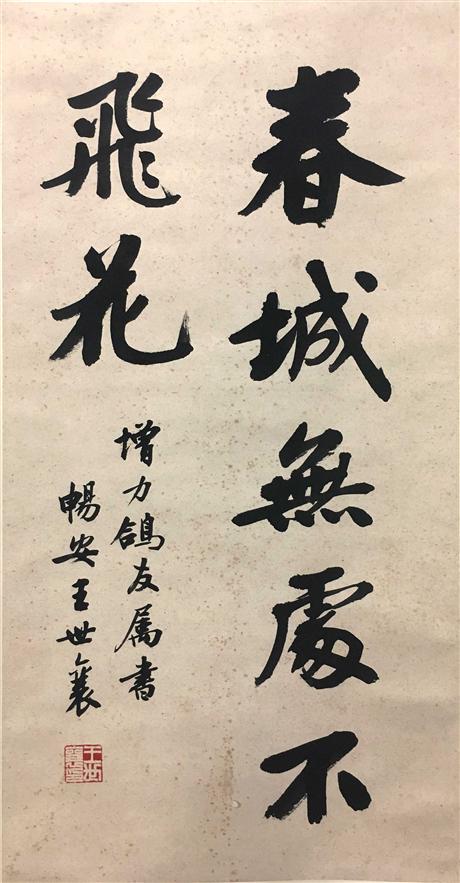 春城無處不
飛花
增力鴿友属書
暢安王世襄